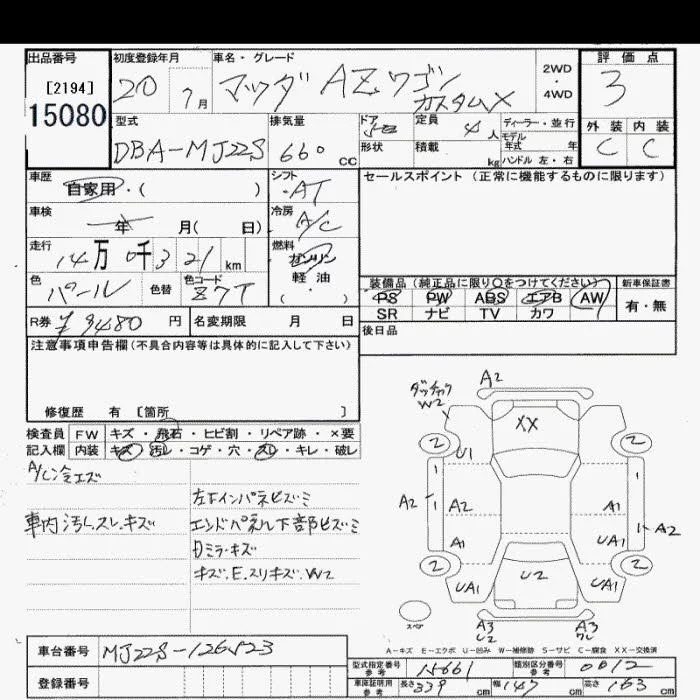 出品番号 初度登録年月 車名・グレード 評価点
[2194]
15080
20 7月 マツダ AZワゴン カスタムX
2WD・4WD
3
外装 内装
C C
型式 排気量 ドア 定員 ディーラー・並行
DBA-MJ22S 660cc 5 4人
モデル年式 年
形状 積載 kg ハンドル 左・右
車歴 シフト セールスポイント (正常に機能するものに限ります)
自家用・( ) AT
車検 冷房
年 月( 日) A/C
走行 燃料
14万0千321km ガソリン
軽油
・( )
色 色替 色コード
パール Z7T
装備品 (純正品に限り○をつけてください) 新車保証書
PS PW ABS エアB AW 有・無
SR ナビ TV カワ
R券 ¥9480円 名変期限 月 日
後日品
注意事項申告欄(不具合内容等は具体的に記入して下さい)
修復歴 有 [箇所 ]
検査員 FW キズ・飛石・ヒビ割・リペア跡・×要
記入欄 内装 キズ・汚レ・コゲ・穴・スレ・キレ・破レ
A/C冷エズ
車内汚レ.スレ.キズ
左下インパネヒズミ
エンドパネル下部ヒズミ
Dミラーキズ
キズ.E.スリキズ.W2
W2 A2
XX
2 2
U1
A2 A2 A1 A2
A1 UA1
2 2
UA1 U2 UA1
スペア
A3 A3
U2
A-キズ E-エクボ U-凹み W-補修跡 S-サビ C-腐食 XX-交換済
車台番号 MJ22S-126523
登録番号
型式指定番号 参考 15661 類別区分番号 参考 0012
車庫証明用 参考 長さ339cm 幅147cm 高さ163cm